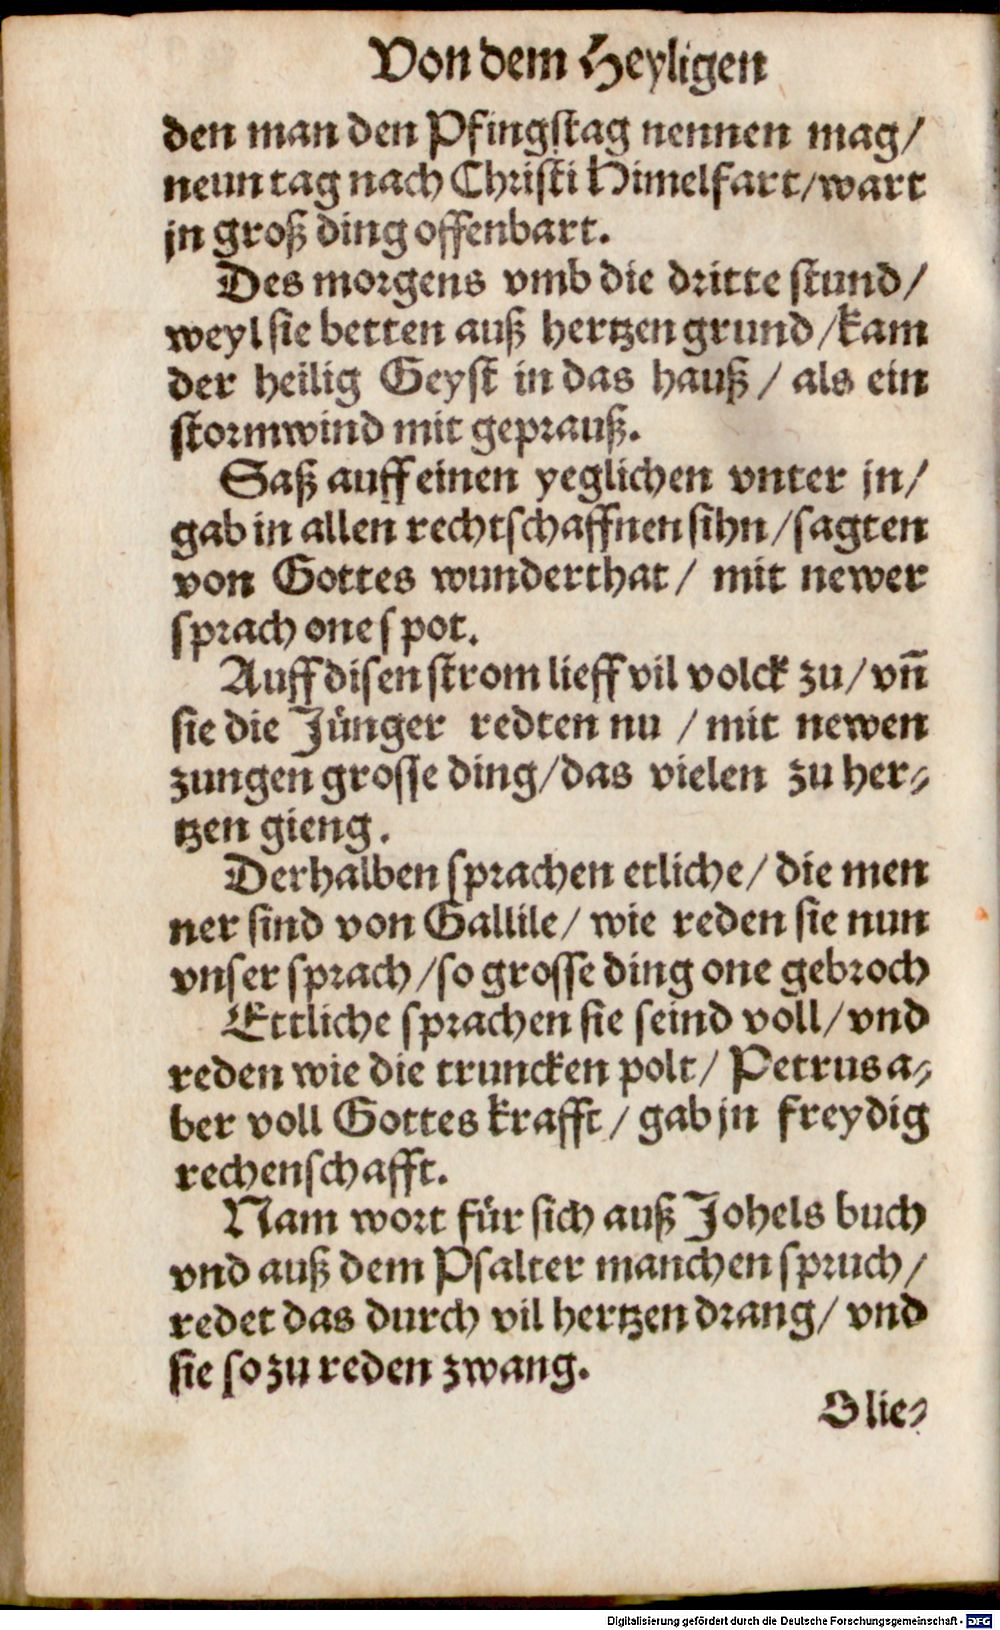 Von dem Heyligen
den man den Pfingstag nennen mag/
neun tag nach Christi Himelfart/wart
jn groß ding offenbart.
Des morgens vmb die dritte stund/
weyl sie betten auß hertzen grund/kam
der heilig Geyst in das hauß/ als ein
stormwind mit geprauß.
Saß auff einen yeglichen vnter jn/
gab in allen rechtschaffnen sihn/sagten
von Gottes wunderthat/ mit newer
sprach one spot.
Auff disen strom lieff vil volck zu/vñ
sie die Jünger redten nu / mit newen
zungen grosse ding/das vielen zu her⸗
tzen gieng.
Derhalben sprachen etliche/ die men
ner sind von Gallile/ wie reden sie nun
vnser sprach/so grosse ding one gebroch
Ettliche sprachen sie seind voll/vnd
reden wie die truncken polt/ Petrus a⸗
ber voll Gottes krafft/ gab jn freydig
rechenschafft.
Nam wort für sich auß Johels buch
vnd auß dem Psalter manchen spruch/
redet das durch vil hertzen drang/ vnd
sie so zu reden zwang.
O lie⸗
Digitalisierung gefördert durch die Deutsche Forschungsgemeinschaft - DFG